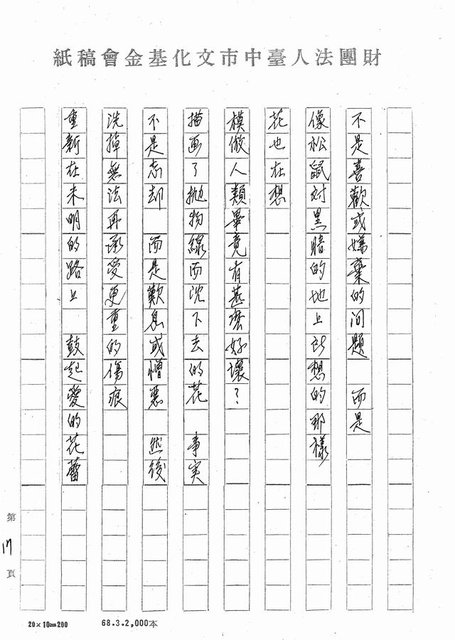 財團法人臺中市文化基金會稿紙
不是喜歡或嫌棄的问题　而是
像松鼠对黑暗的地上所想的那樣
花也在想
模倣人類畢竟有甚麽好壞？
描画了抛物線而沈下去的花　事实
不是忘却　而是歎息或憎惡　然後
洗掉無法再承受更重的傷痕
重新在未明的路上　鼓起愛的花蕾
第17頁
20×10㎜200
68.3.2,000本